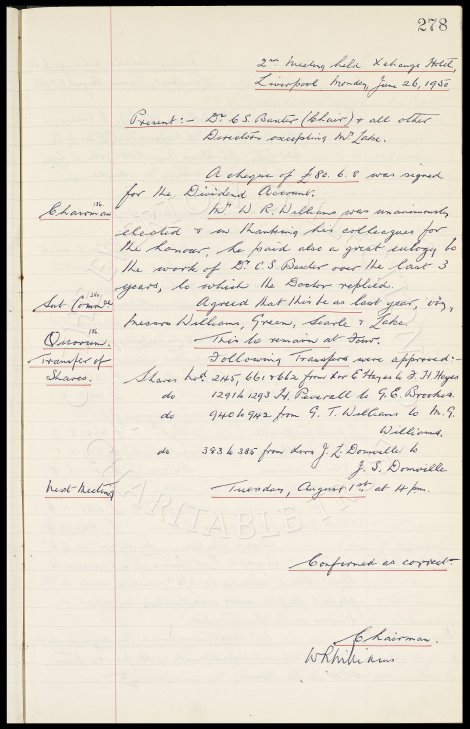 278
2nd Meeting held Xchange Hotel,
Liverpool Monday, June 26, 1950
Present:- Dr C S Baxter (Chair) & all other
Directors excepting Mr Lake.
A cheque of £80. 6. 8 was signed
for the Dividend Account.
Chairman 156. Mr W. R. Williams was unanimously
elected & in thanking his colleagues for
the honour, he paid also a great eulogy to
the work of Dr C.S. Baxter over the last 3
years, to which the Doctor replied.
Agreed that this be as last year, viz,
Messrs Williams, Green, Searle & Lake.
Quorum. 156. This to remain at Four.
Transfer of Shares. Following Transfers were approved:-
Shares Nos. 2145, 661 & 662 from E Hayes to F. H Hayes
do 1291 to 1293 H. Peverall to G. E. Brookes.
do 940 to 942 from G. T. Williams to M. G.
Williams.
do 383 to 385 from J. L. Domville to
J. S. Domville
Next Meeting Tuesday, August 1st at 4 pm.
CHARITABLE
Confirmed as correct.
Chairman.
WRWilliams